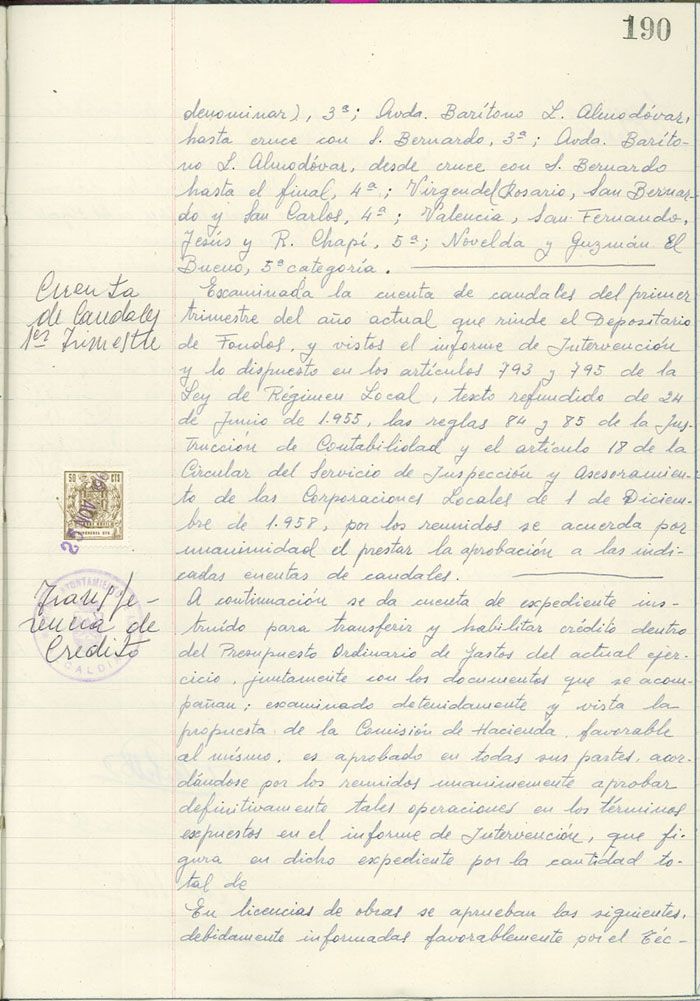 190
denominar), 3ª; Avda. Barítono L. Almodóvar,
hasta cruce con S. Bernardo, 3ª; Avda. Baríto-
no L. Almodóvar, desde cruce con S. Bernardo
hasta el final, 4ª; Virgen del Rosario, San Bernar-
do y San Carlos, 4ª; Valencia, San Fernando,
Jesús y R. Chapí, 5ª; Novelda y Guzmán El
Bueno, 5ª categoría.
Cuenta
de Caudales
1er Trimestre
Examinada la cuenta de caudales del primer
trimestre del año actual que rinde el Depositario
de Fondos, y vistos el informe de Intervención
y lo dispuesto en los artículos 793 y 795 de la
Ley de Régimen Local, texto refundido de 24
de Junio de 1.955, las reglas 84 y 85 de la Ins-
trucción de Contabilidad y el artículo 18 de la
Circular del Servicio de Inspección y Asesoramien-
to de las Corporaciones Locales de 1 de Diciem-
bre de 1.958, por los reunidos se acuerda por
unanimidad el prestar la aprobación a las indi-
cadas cuentas de caudales.
50 CTS
25 NOV
AYUNTAMIENTO
ALCALDIA
Transfe-
rencia de
Crédito
A continuación se da cuenta de expediente ins-
truido para transferir y habilitar crédito dentro
del Presupuesto Ordinario de Gastos del actual ejer-
cicio, juntamente con los documentos que se acom-
pañan; examinado detenidamente y vista la
propuesta de la Comisión de Hacienda, favorable
al mismo, es aprobado en todas sus partes, acor-
dándose por los reunidos unanimemente aprobar
definitivamente tales operaciones en los términos
expuestos en el informe de Intervención, que fi-
gura en dicho expediente por la cantidad to-
tal de
En licencias de obras se aprueban las siguientes,
debidamente informadas favorablemente por el Téc-